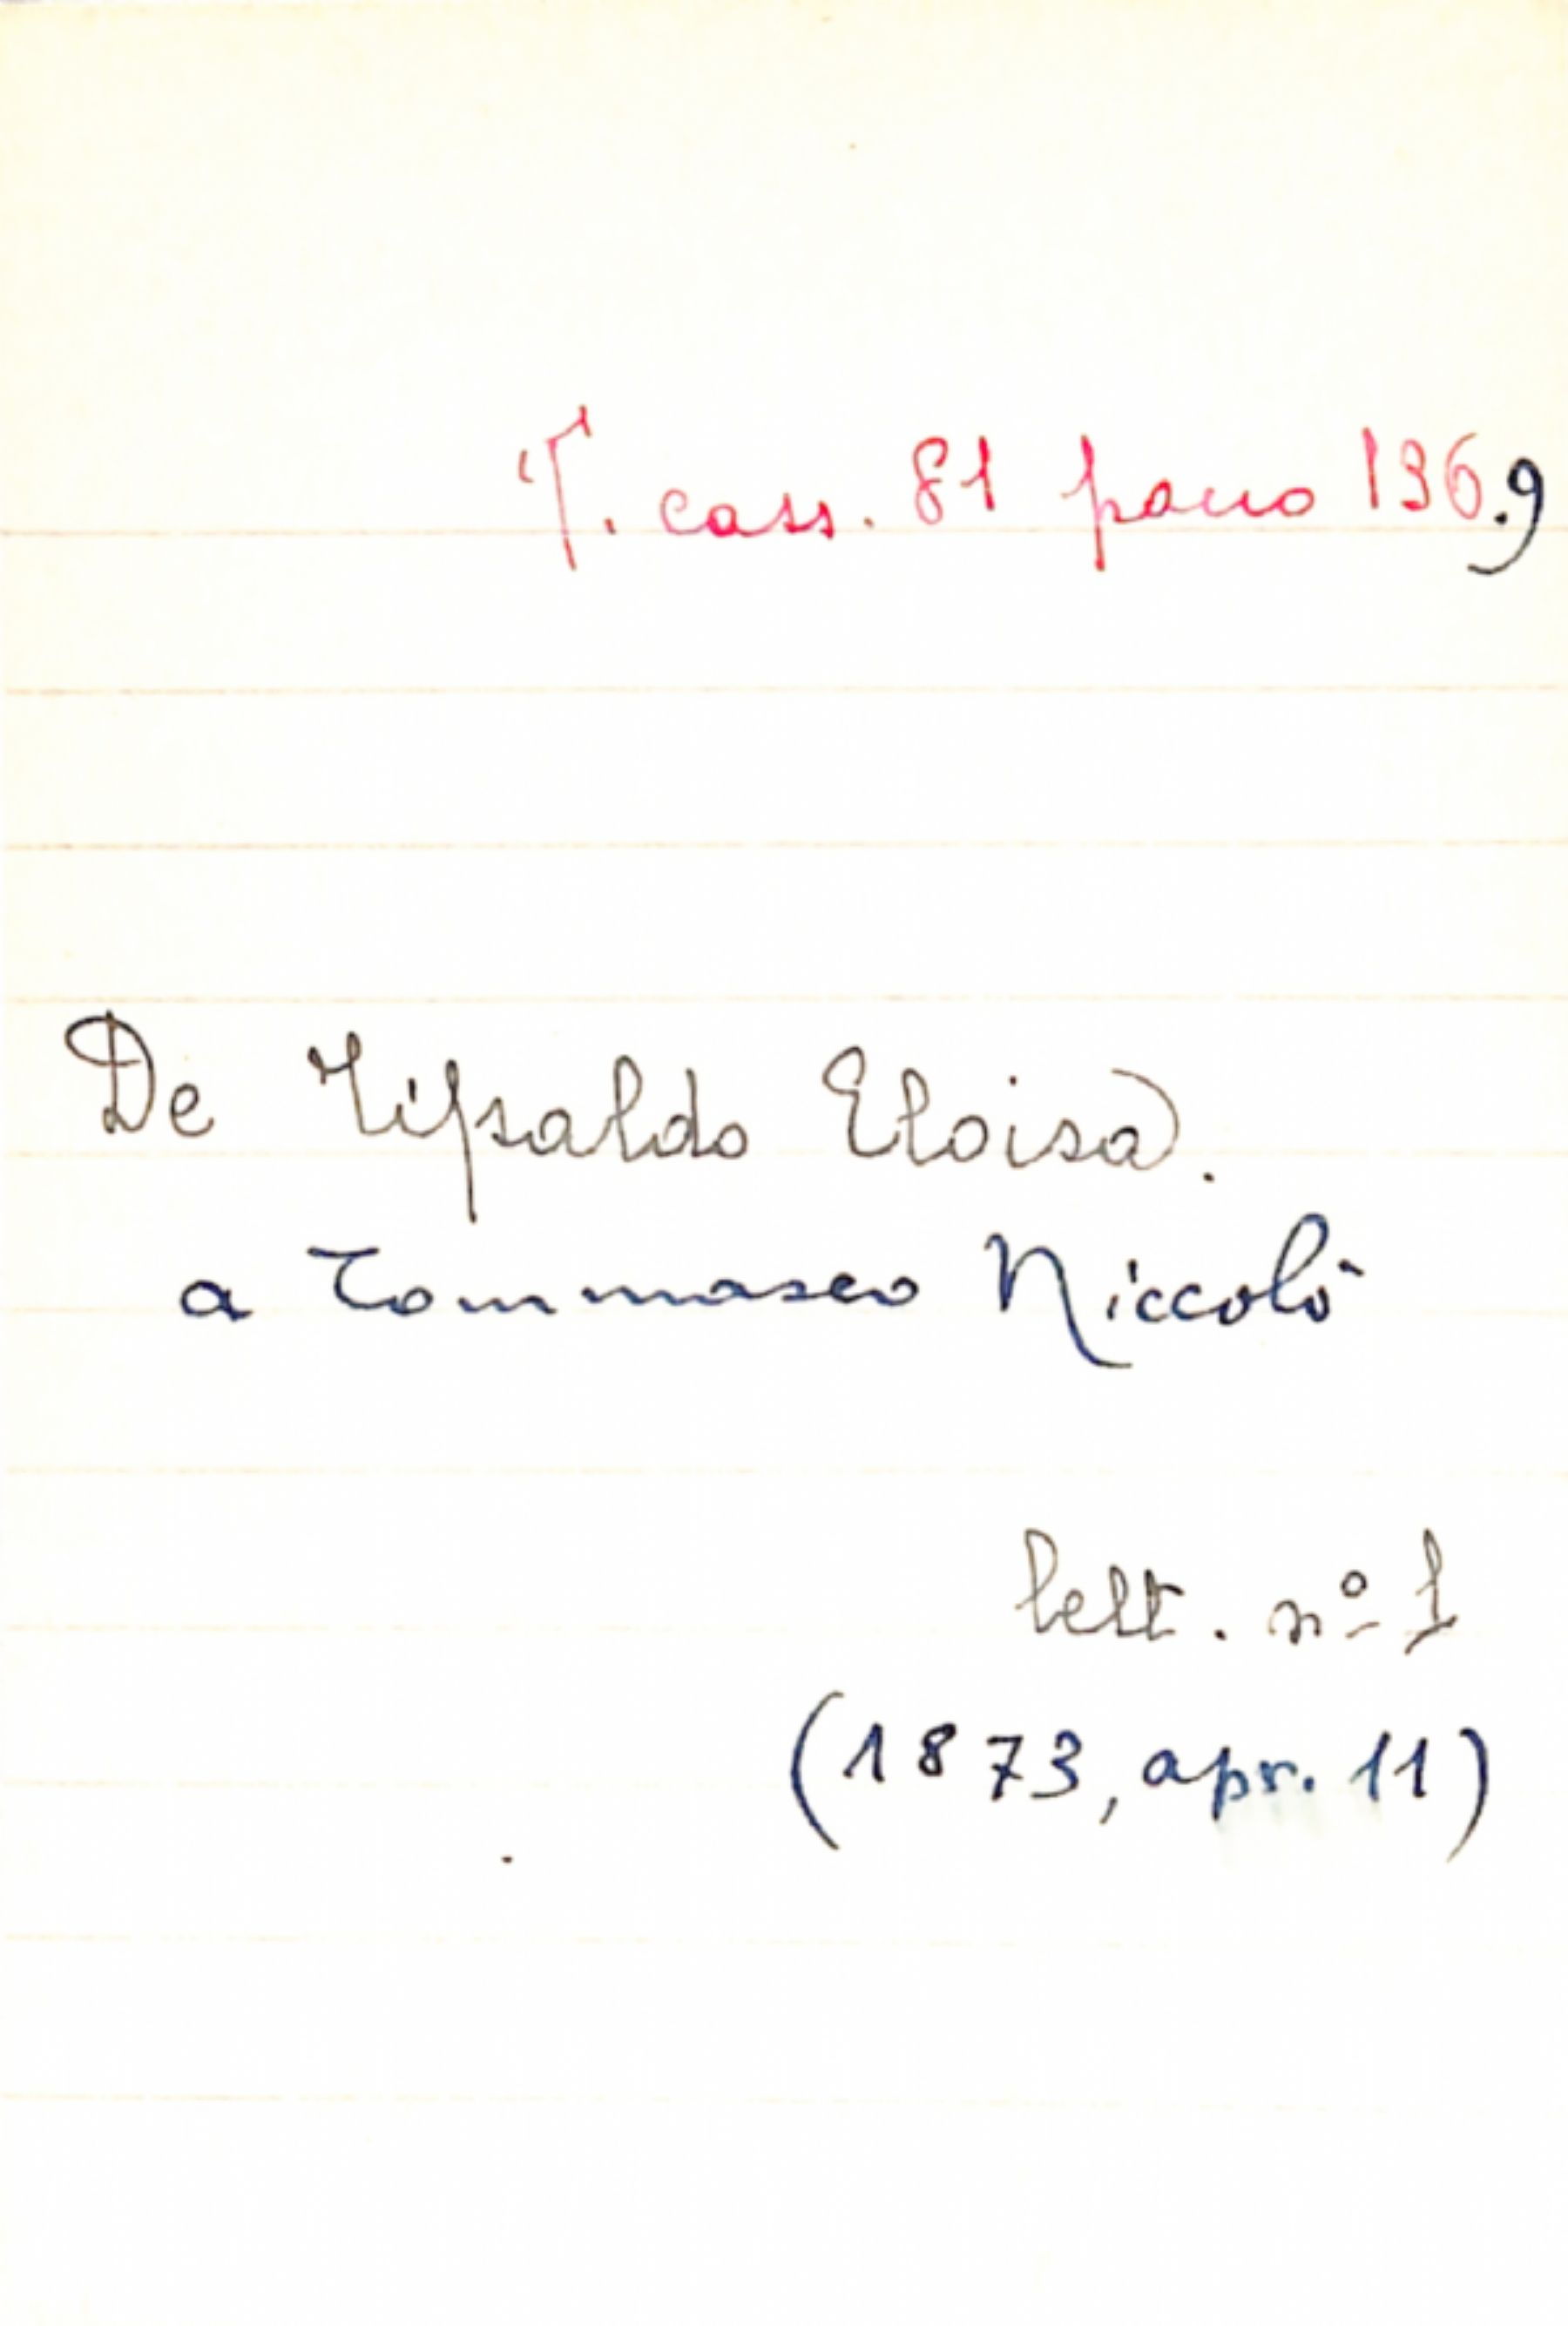 T. cass. 81 panno 136.9
De Tipaldo Eloisa.
a Tommaseo Niccolò
lett. nº 1
(1873, apr. 11)